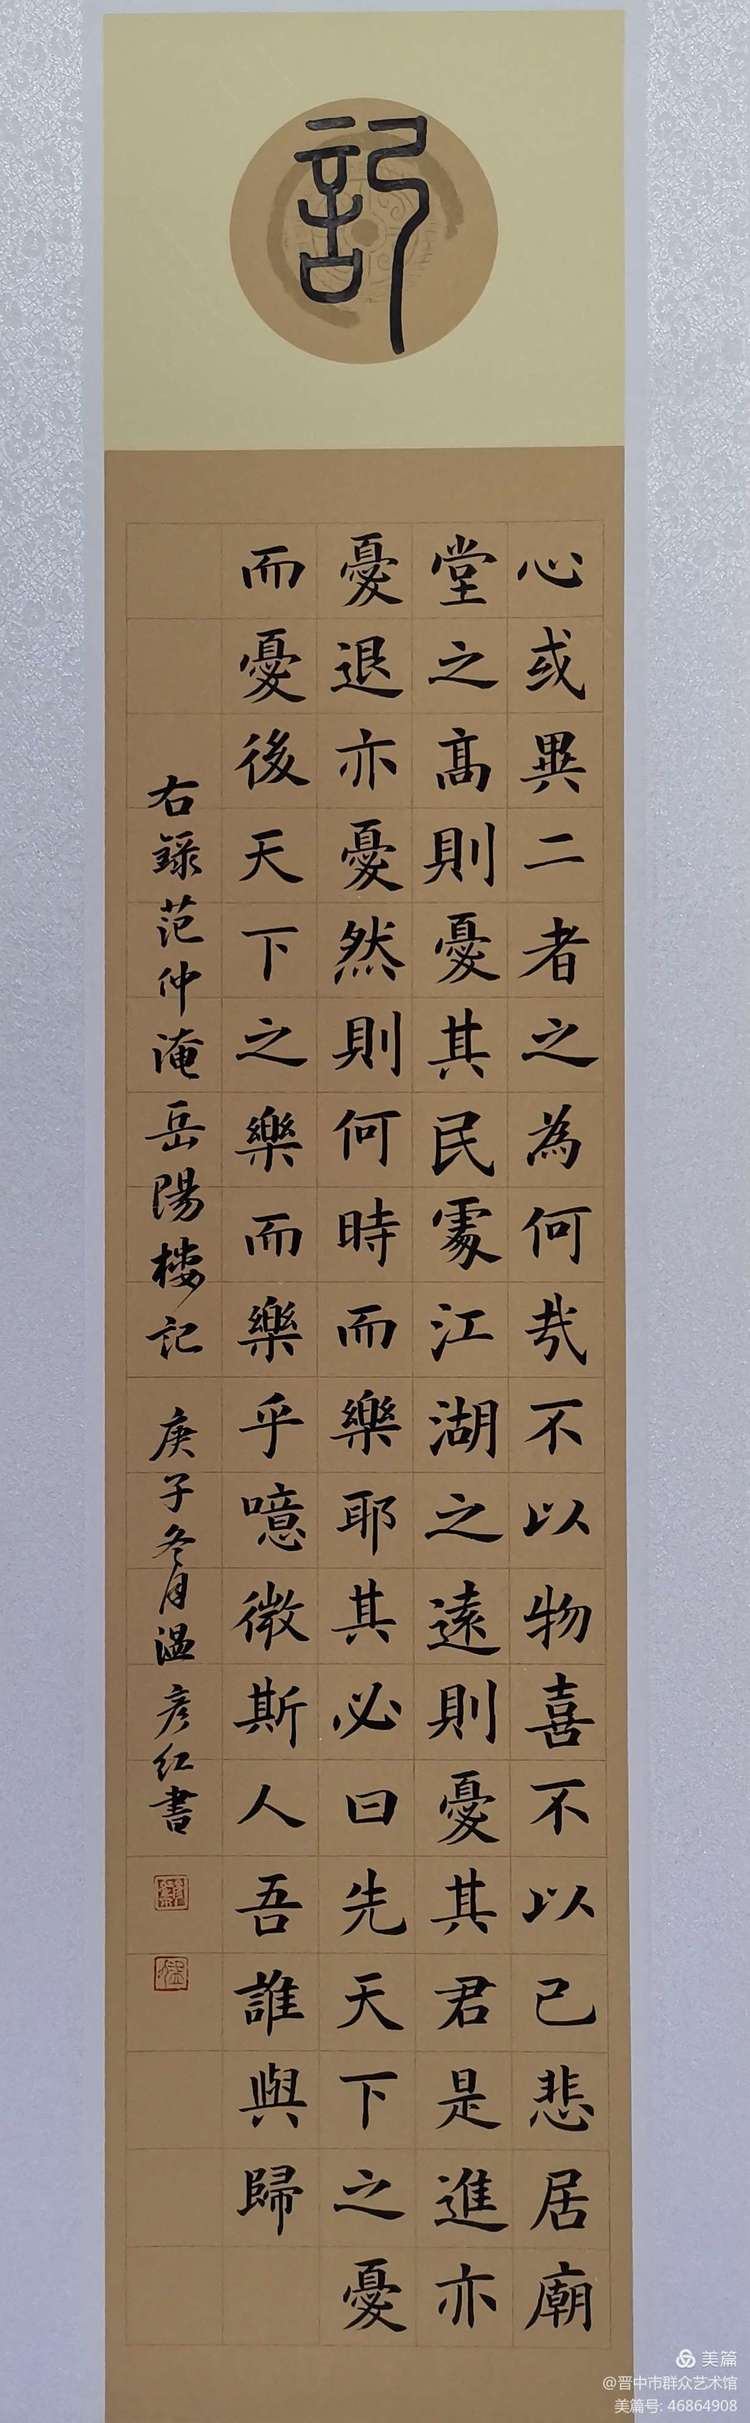 記
心或異二者之為何哉不以物喜不以己悲居廟
堂之髙則憂其民處江湖之遠則憂其君是進亦
憂退亦憂然則何時而樂耶其必曰先天下之憂
而憂後天下之樂而樂乎噫微斯人吾誰與歸
右錄范仲淹岳陽楼記 庚子冬月温彦红書
美篇
@晋中市群众艺术馆
美篇号: 46864908